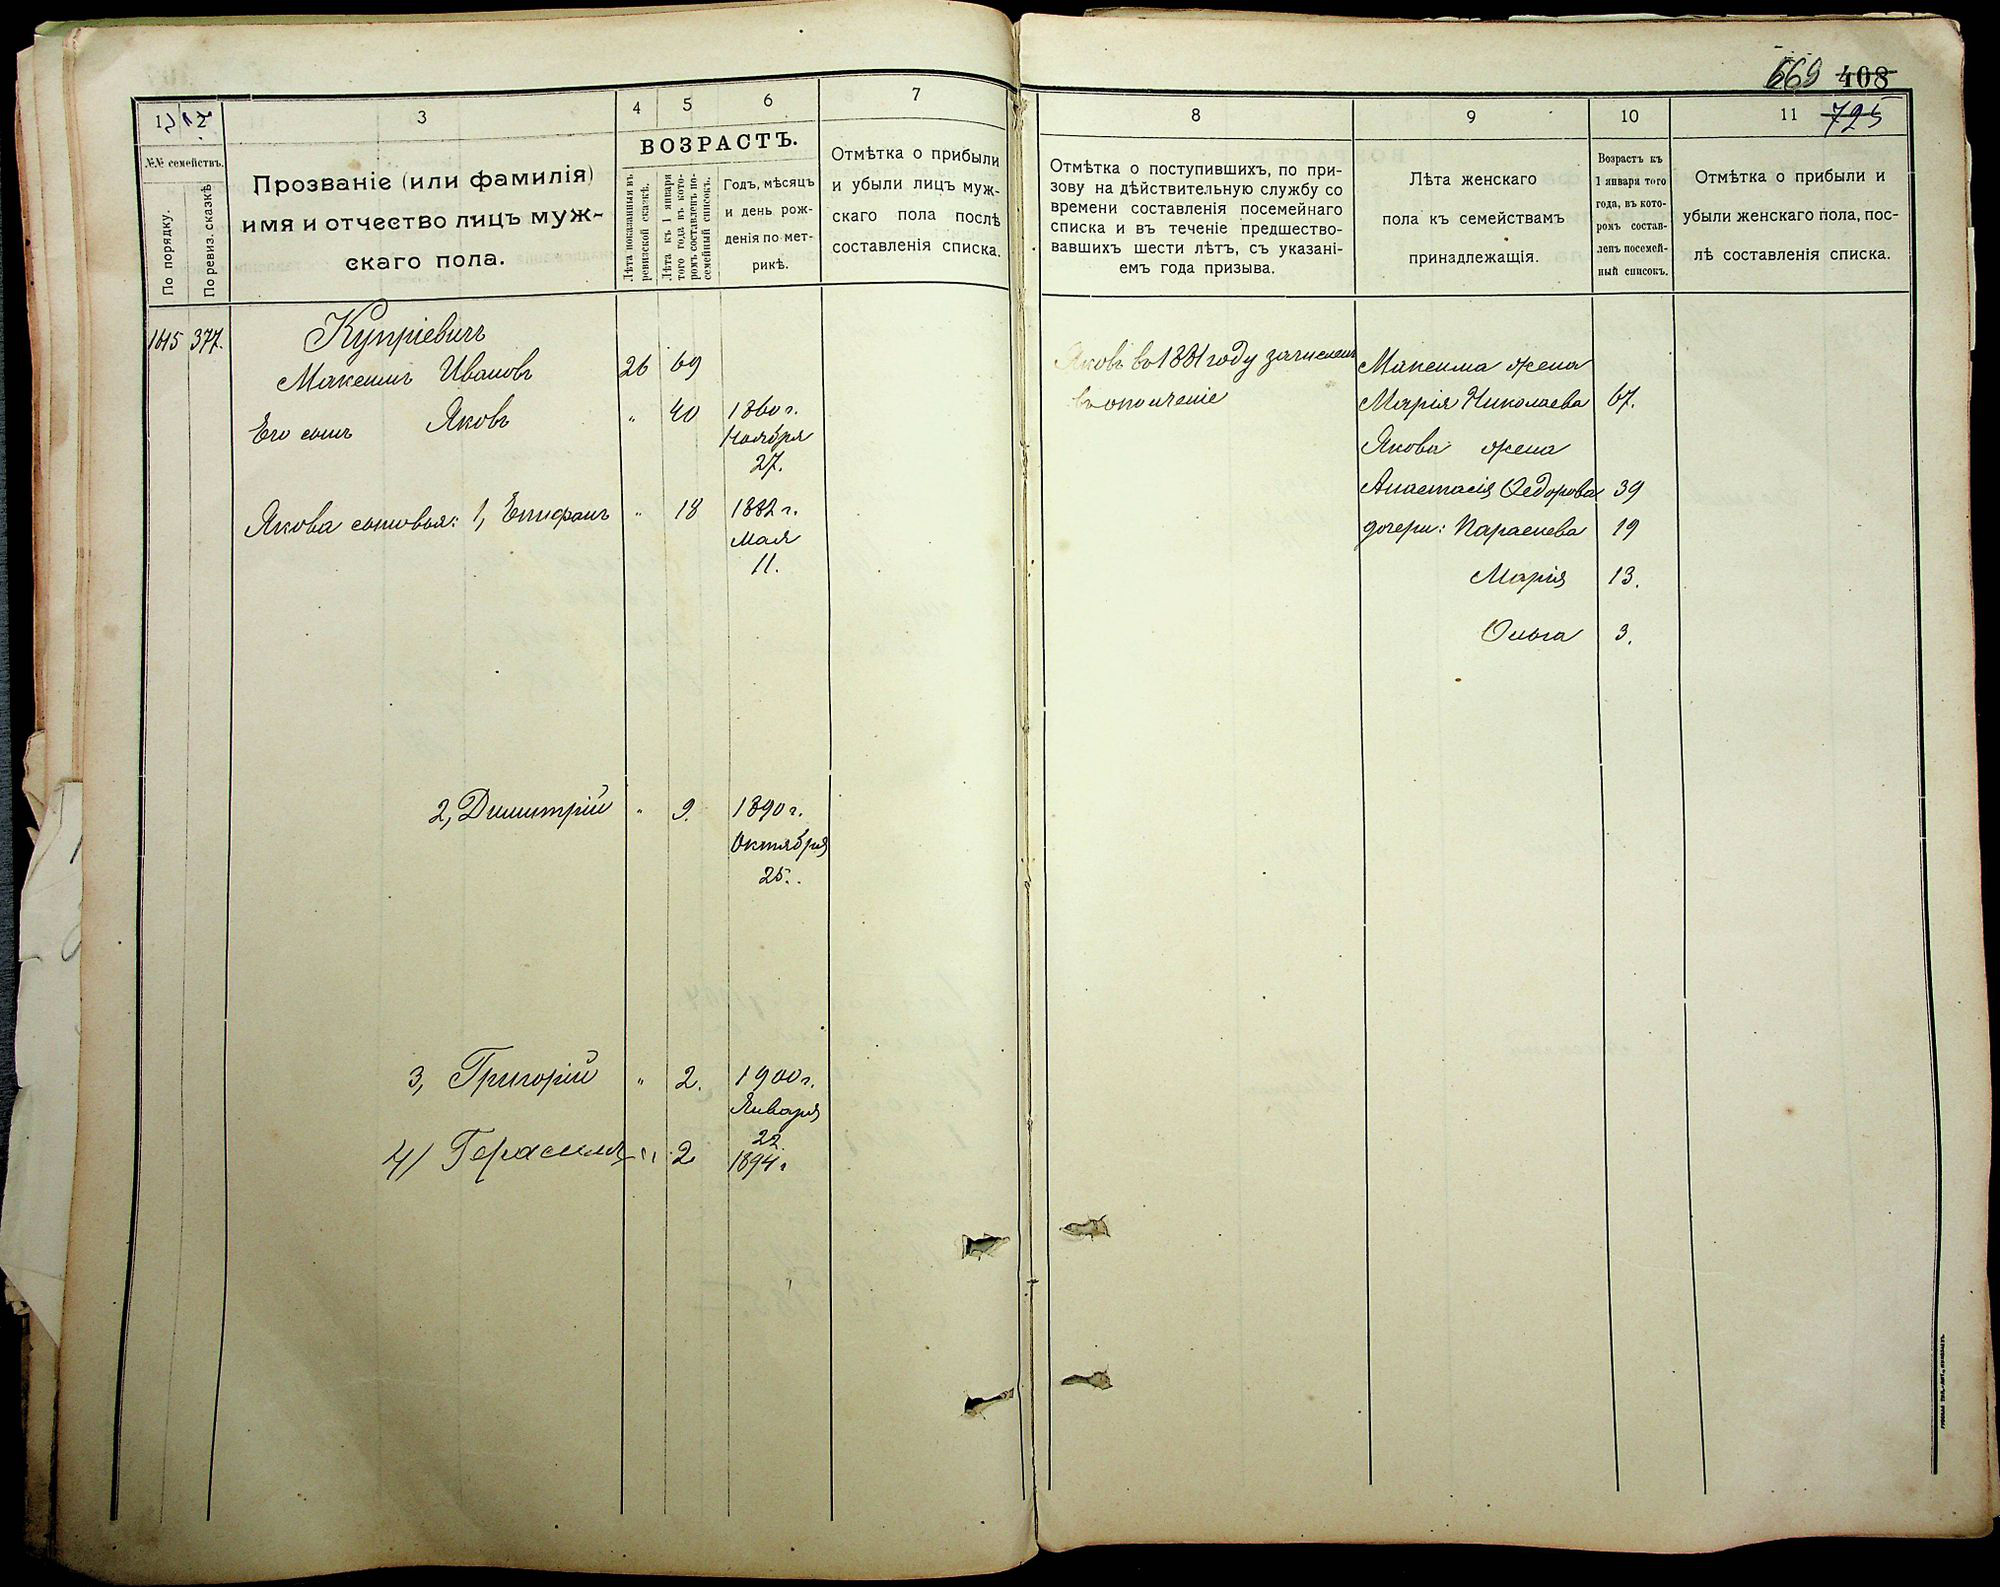 669 408
725
1 2 3 4 5 6 7
№№ семействъ.
По порядку.
По ревиз. сказкѣ
Прозваніе (или фамилія)
имя и отчество лицъ муж-
скаго пола.
ВОЗРАСТЪ.
Лѣта показанныя въ
ревизской сказкѣ.
Лѣта къ 1 января
того года въ кото-
ромъ составленъ по-
семейный списокъ.
Годъ, мѣсяцъ
и день рож-
денія по мет-
рикѣ.
Отмѣтка о прибыли
и убыли лицъ муж-
скаго пола послѣ
составленія списка.
1615 377.
Купріевичъ
Максимъ Ивановъ 26 69
Его сынъ Яковъ " 40 1860 г.
Ноября
27.
Якова сыновья: 1, Епифанъ " 18 1882 г.
Мая
11.
2, Димитрій " 9. 1890 г.
Октября
25.
3, Григорій " 2. 1900 г.
Января
22
4/ Герасимъ " 2 1894 г
8 9 10 11
Отмѣтка о поступившихъ, по при-
зову на дѣйствительную службу со
времени составленія посемейнаго
списка и въ теченіе предшество-
вавшихъ шести лѣтъ, съ указані-
емъ года призыва.
Лѣта женскаго
пола къ семействамъ
принадлежащія.
Возрастъ къ
1 января того
года, въ кото-
ромъ состав-
ленъ посемей-
ный списокъ.
Отмѣтка о прибыли и
убыли женскаго пола, пос-
лѣ составленія списка.
Яковъ въ 1881 году зачисленъ
въ ополченіе
Максима жена
Марія Николаева 67.
Якова жена
Анастасія Ѳедорова 39
дочери: Параскева 19
Марія 13.
Ольга 3.